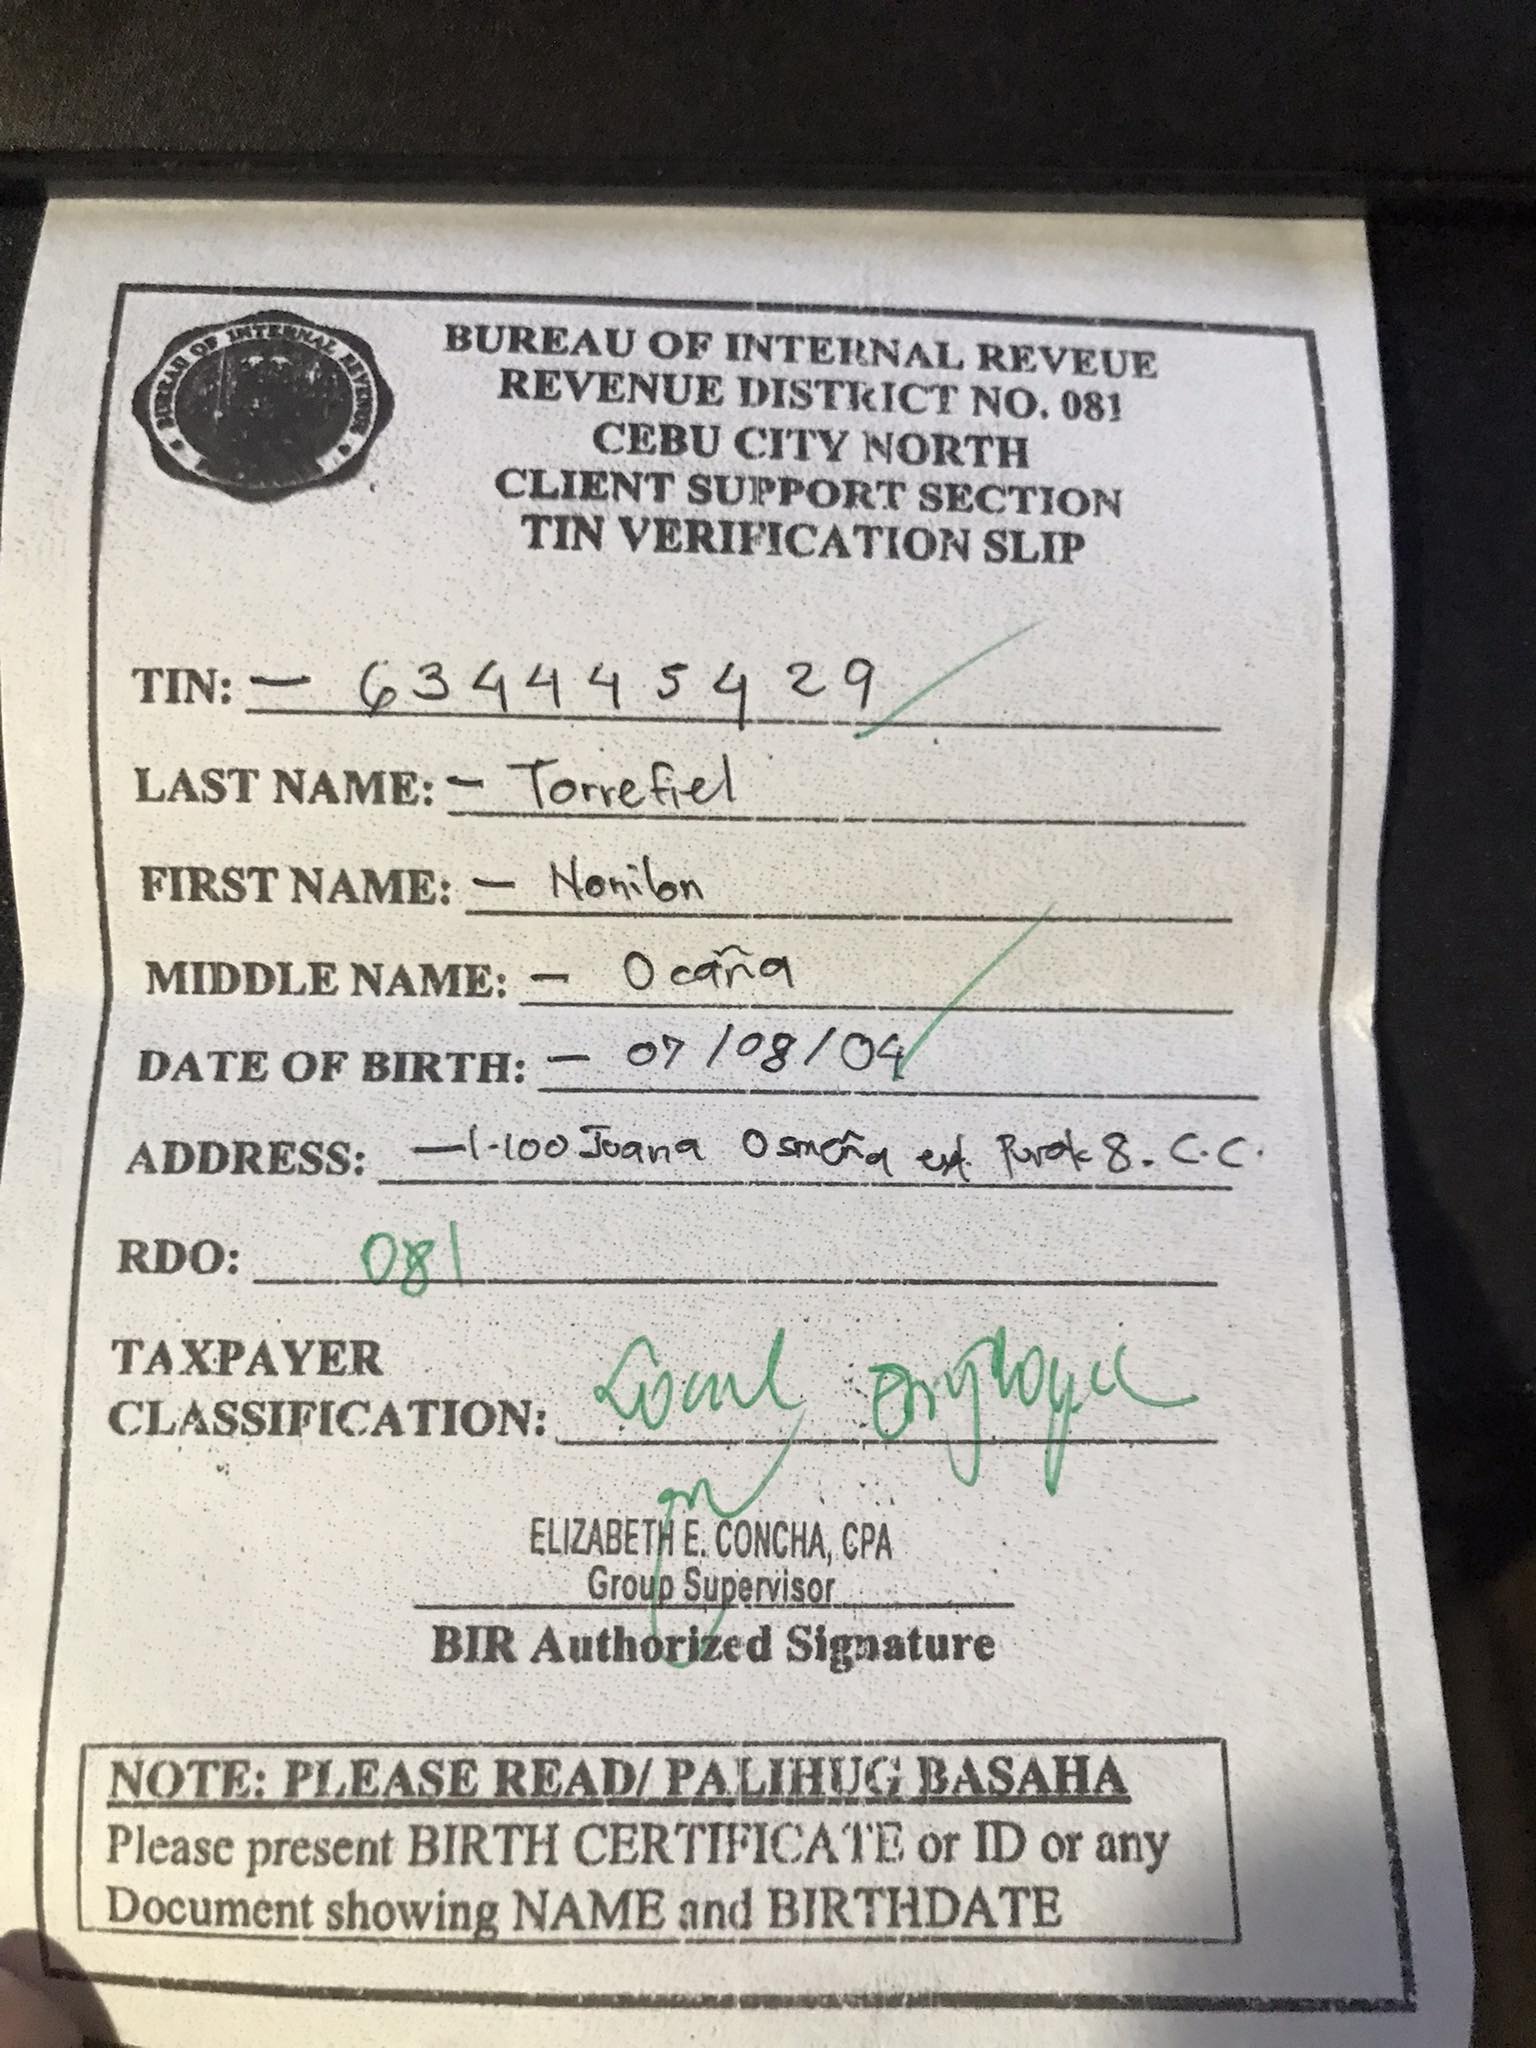 BUREAU OF INTERNAL REVENUE
BUREAU OF INTERNAL REVEUE
REVENUE DISTRICT NO. 081
CEBU CITY NORTH
CLIENT SUPPORT SECTION
TIN VERIFICATION SLIP
TIN: - 634445429
LAST NAME: - Torrefiel
FIRST NAME: - Nonilon
MIDDLE NAME: - Ocaña
DATE OF BIRTH: - 07/08/04
ADDRESS: - 1-100 Joana Osmeña ext. Purok 8. C.C.
RDO: 081
TAXPAYER
CLASSIFICATION: Local Employee
ELIZABETH E. CONCHA, CPA
Group Supervisor
BIR Authorized Signature
NOTE: PLEASE READ/ PALIHUG BASAHA
Please present BIRTH CERTIFICATE or ID or any
Document showing NAME and BIRTHDATE